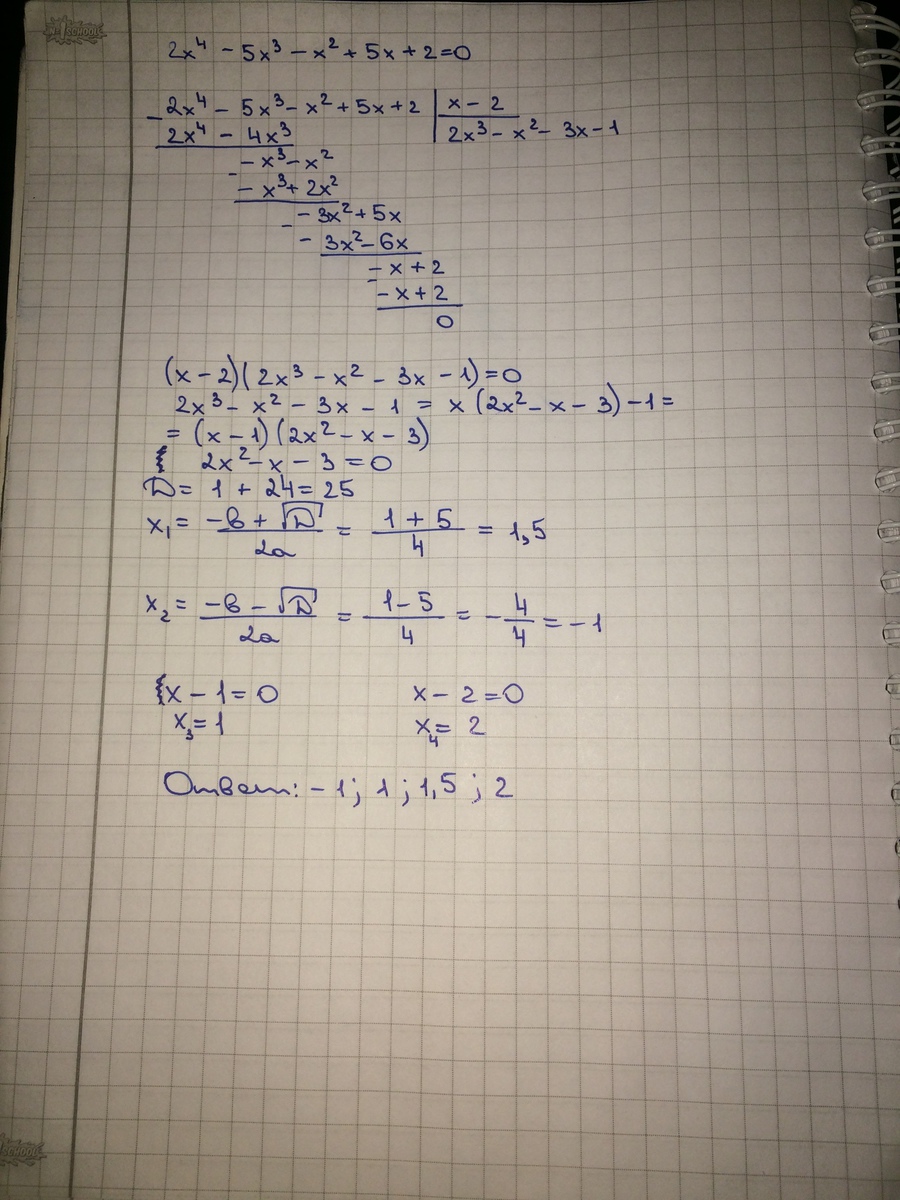 №1 SCHOOL
2x⁴ - 5x³ - x² + 5x + 2 = 0
- 2x⁴ - 5x³ - x² + 5x + 2 | x - 2
2x⁴ - 4x³ | 2x³ - x² - 3x - 1
- - x³ - x²
- x³ + 2x²
- - 3x² + 5x
- 3x² - 6x
- - x + 2
- x + 2
0
(x - 2)(2x³ - x² - 3x - 1) = 0
2x³ - x² - 3x - 1 = x(2x² - x - 3) - 1 =
= (x - 1)(2x² - x - 3)
2x² - x - 3 = 0
D = 1 + 24 = 25
x₁ = (-в + √D)/2a = (1 + 5)/4 = 1,5
x₂ = (-в - √D)/2a = (1 - 5)/4 = -4/4 = -1
x - 1 = 0 x - 2 = 0
x₃ = 1 x₄ = 2
Ответ: -1; 1; 1,5; 2
SCHOOL